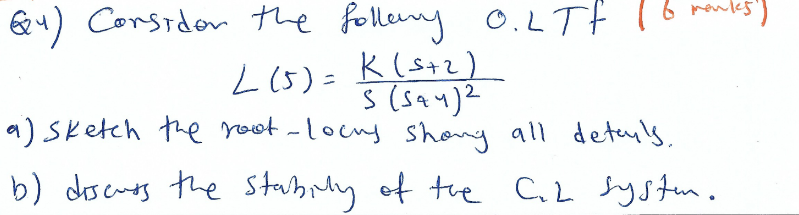 Q4) Consider the following O.L Tf (6 marks)
L(s) = K(s+2)
s(s+4)²
a) sketch the root-locus showing all details.
b) discuss the stability of the C.L system.